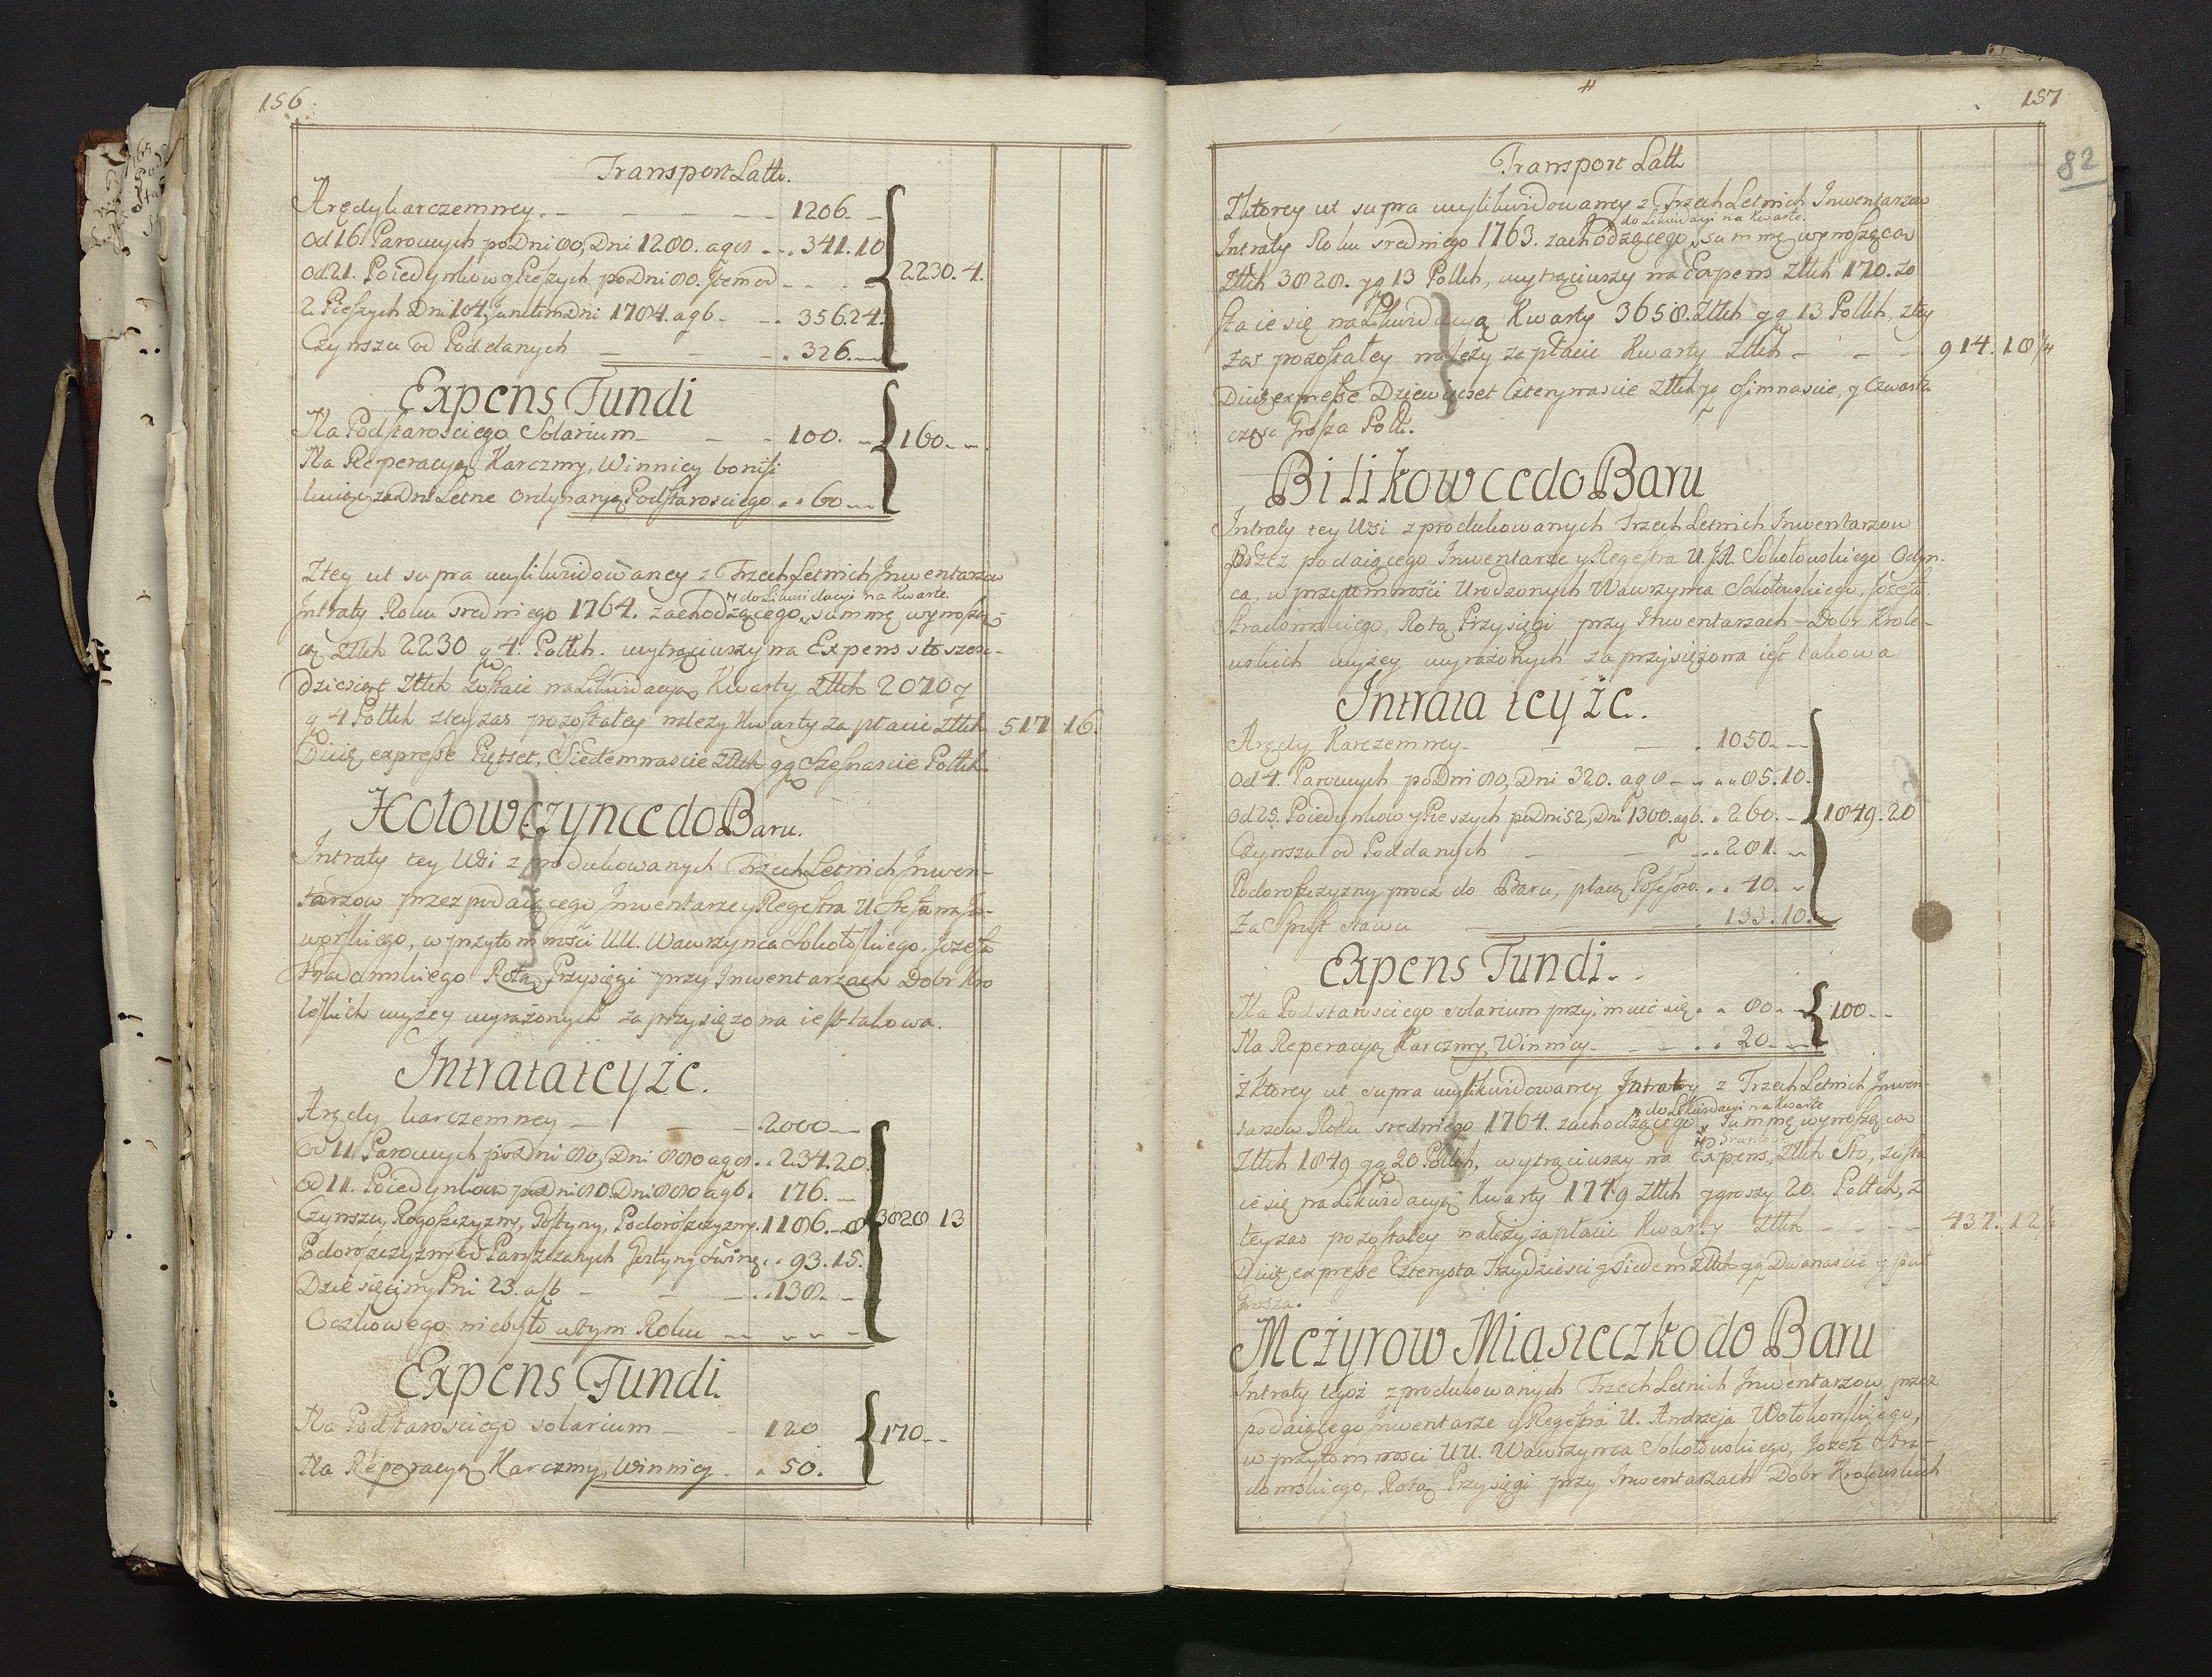 156.
Transport Latt.
Arędy karczemney. 1206.
Od 16 Parowych po Dni 80, Dni 1280. a g 8 341.10
od 21. Poiedynkow y Pieszych po Dni 80. Item od
2 Pieszych Dni 104. Junctim Dni 1784. a g 6 356.24. 2230.4.
Czynszu od Poddanych 326.
Expens Fundi
Na Podstarosciego Solarium 100. 160.
Na Reperacyą Karczmy, Winnicy bonifi
kuiąc za Dni Letne Ordynaryą Podstarosciego 60.
Z tey ut supra wylikwidowaney z Trzech Letnich Inwentarzow
do Likwidacyi na Kwartę
Intraty Roku sredniego 1764. zachodzącego, summę wynoszą-
cą Złłch 2230 g 4. Pollch. wytrąciwszy na Expens sto szesc-
dziesiąt Złłch zostaie na Likwidacyą Kwarty Złłch 2070 y
g 4 Pollch z tey zas pozostałey należy Kwarty zapłacić Złłch 517 16.
Dicię expresse Pięćset, Siedemnascie Złłch gg Szesnascie Pollch.
Hołowczynce do Baru.
Intraty tey Wsi z produkowanych Trzech Letnich Inwen-
tarzow przez podaiącego Inwentarze y Regestra U. Stefana Ja-
worskiego, w przytomnosci UU. Wawrzynca Sokołskiego, Jozefa
Stradomskiego Rotą Przysięgi przy Inwentarzach Dobr Kro
lewskich wyzey wyrazonych zaprzysięzona iest takowa.
Intrata teyże.
Arędy karczemney 2000
Od 11 Parowych po Dni 80, Dni 880 a g 8. 234.20.
od 11. Poiedynkow po Dni 80. Dni 880 a g 6. 176.
Czynszu, Rogoszczyzny, Gostyny, Podoroszczyzny. 1186. 8 3828 13
Podoroszczyzny od Paryzczanych Gostyny Swiną 93.15.
Dziesięciny Pni 23. a f 6 138.
Oczkowego nie było w tym Roku
Expens Fundi.
Na Podstarosciego solarium 120 170
Na Reperacyą Karczmy, Winnicy 50.
157
82
Transport Latt
Z ktorey ut supra wylikwidowaney z Trzech Letnich Inwentarzow
do Likwidacyi na Kwartę.
Intraty Roku sredniego 1763. zachodzącego, summę wynoszącą
Złłch 3828. y g 13 Pollch, wytrąciwszy na Expens Złłch 170. zo
staie się na Likwidacyą Kwarty 3658. Złłch gg 13 Pollch, z tey
zas pozostałey należy zapłacić Kwarty Złłch 914. 18 1/4
Dicię expresse Dziewięćset Czternascie Złłch gg osimnascie, y Czwarta
częsc Grosza Poll.
Bilikowce do Baru
Intraty tey Wsi z produkowanych Trzech Letnich Inwentarzow
przez podaiącego Inwentarze y Regestra U. JX. Sokołowskiego Odyn.
ca, w przytomnosci Urodzonych Wawrzynca Sokołowskiego, Jozefa
Stradomskiego, Rotą Przysięgi przy Inwentarzach Dobr Krole-
wskich wyżey wyrażonych zaprzysiężona iest takowa
Intrata teyże.
Arędy Karczemney 1050.
Od 4. Parowych po Dni 80, Dni 320. a g 8 85.10.
Od 25. Poiedynkow y Pieszych po Dni 52, Dni 1300. a g 6. 260. 1849.20
Czynszu od Poddanych 281.
Podoroszczyzny procz do Baru, płacą Possessoro. 40.
Za Spust stawu 133.10.
Expens Fundi.
Na Podstarosciego solarium przyimuie się 80. 100.
Na Reperacyą Karczmy, Winnicy 20.
Z ktorey ut supra wylikwidowaney Intraty z Trzech Letnich Inwen-
do Likwidacyi na Kwartę
tarzow Roku sredniego 1764. zachodzącego, Summę wynoszącą
Złłch 1849 gg 20 Pollch, wytrąciwszy na Expens, Złłch Sto, zosta
ie się na Likwidacyą Kwarty 1749 Złłch y groszy 20. Pollch, z
tey zas pozostałey należy zapłacić Kwarty Złłch 437. 12 1/2
Dicię expresse Czterysta Trzydziesci y Siedem Złłch gg Dwanascie y puł
grosza.
Meżyrow Miasteczko do Baru
Intraty tegoż z produkowanych Trzech Letnich Inwentarzow przez
podaiącego Inwentarze y Regestra U. Andrzeja Wołkowskiego,
w przytomnosci UU. Wawrzynca Sokołowskiego, Jozefa Stra-
domskiego, Rotą Przysięgi przy Inwentarzach Dobr Krolewskich